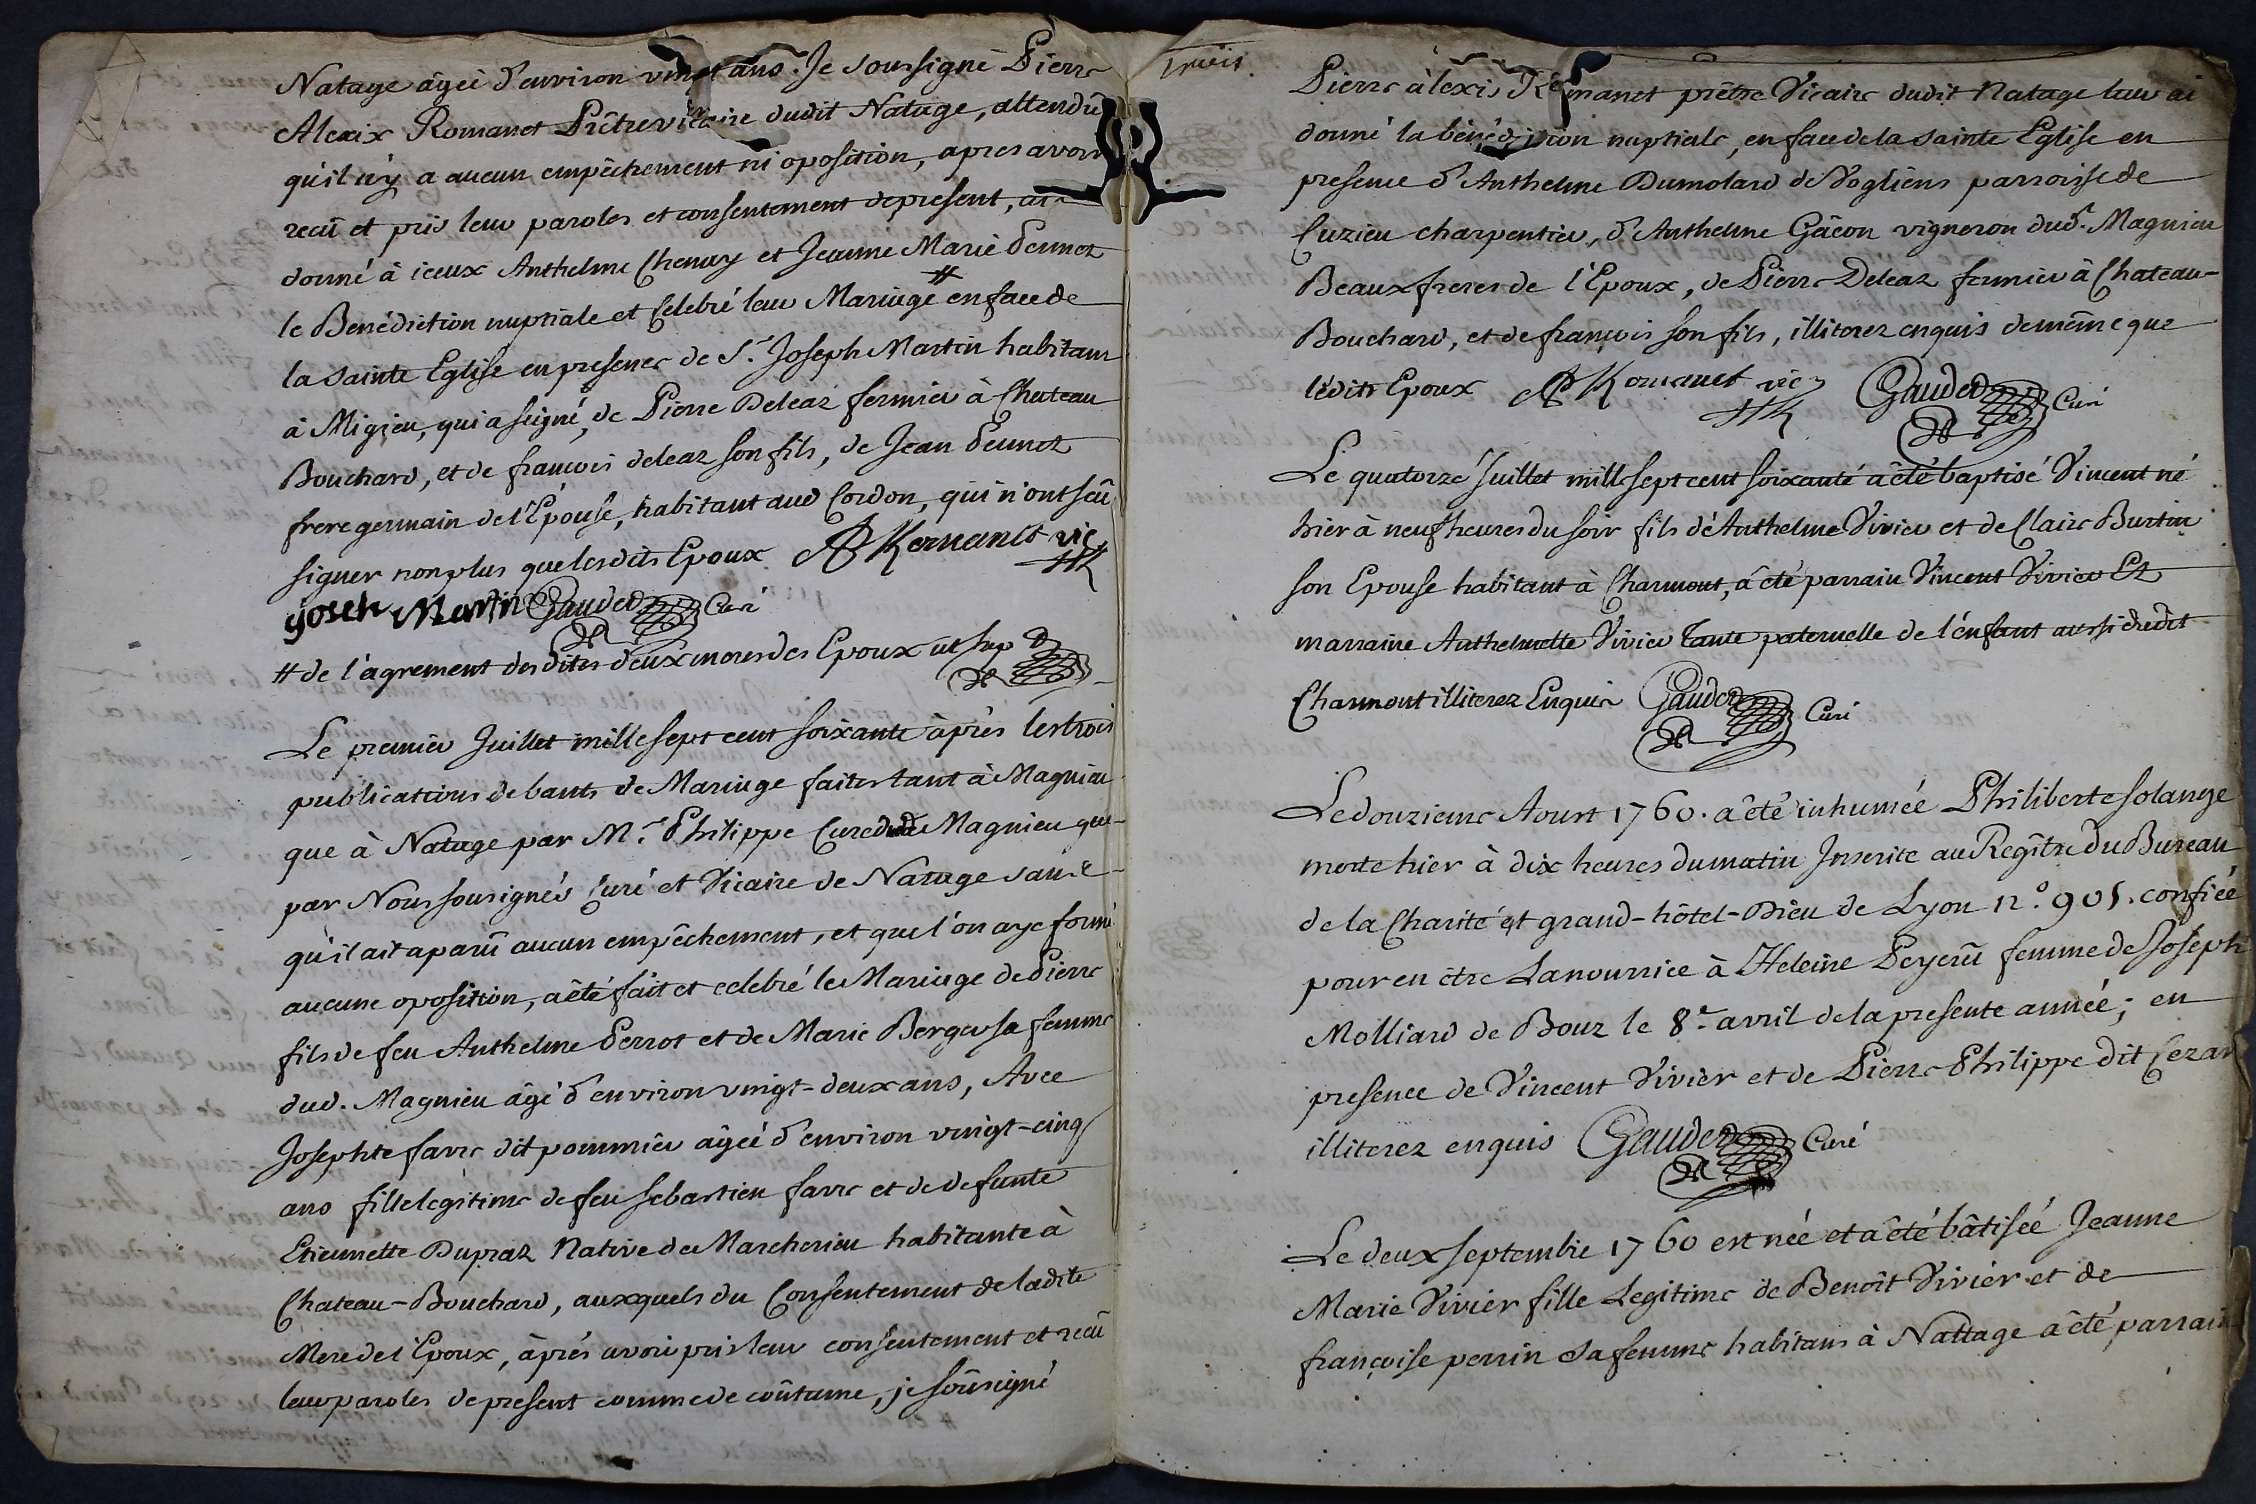 Natage âgeé d'environ vingt ans. Je soussigné Pierre
Alexix Romanet Prêtre vicaire dudit Natage, attendû
qu'il n'y a aucun empêchement ni oposition, apres avoir
reçû et pris leur paroles et consentement de present, ai
donné à iceux Anthelme Chenay et Jeanne Marie Peunet
le Benédiction nuptiale et Celebré leur Mariage # en face de
la sainte Eglise en presence de Sr. Joseph Martin habitant
à Migieu, qui a signé, de Pierre Deleaz fermier à Chateau
Bouchard, et de françois deleaz son fils, de Jean Peunet
frere germain de l'Epouse, habitant aud Cordon, qui n'ont sçû
signer non plus que lesdits Epoux AP Romanet vic
josehc Martin Gaudet Curé
# de l'agrement des dites deux meres des Epoux ut sup
Le premier Juillet mille sept cent soixante àprès les trois
publications de bants de Mariage faites tant à Magnieu
que à Natage par Mr. Philippe Curé dud Magnieu que
par Nous sousignés Curé et Vicaire de Natage sans
qu'il ait aparû aucun empêchement, et que l'on aye formé
aucune oposition, a été fait et celebré le Mariage de Pierre
fils de feu Anthelme Perrot et de Marie Berger sa femme
dud. Magnieu âgé d'environ vingt-deux ans, Avec
Josephte favre dit pommier âgeé d'environ vingt-cinq
ans fille legitime de feu Sebastien favre et de defunte
Etiennette Dupraz Native de Marcherieu habitante à
Chateau-Bouchard, auxquels du Consentement de ladite
Mere de l'Epoux, àprés avoir pris leur consentement et reçû
leur paroles de present comme de coûtume, je soûsigné
Pierre àlexis Romanet prêtre Vicaire dudit Natage leur ai
donné la bénédiction nuptiale, en face de la sainte Eglise en
presence d'Anthelme Dumolard de Vogliens parroisse de
Cuzieu charpentier, d'Anthelme Gâcon vigneron dud. Magnieu
Beaux freres de l'Epoux, de Pierre Deleaz fermier à Chateau-
Bouchard, et de françois son fils, illiterez enquis de même que
lédits Epoux AP Romanet vic Gaudet Curé
Le quatorze Juillet mille sept cent soixante a été baptisé Vincent né
hier à neuf heures du soir fils d'Anthelme Vivier et de Claire Burtin
son Epouse habitant à Charmont, a été parrain Vincent Vivier Et
marraine Anthelmette Vivier tante paternelle de l'enfant aussi dudit
Charmont illiterez Enquis Gaudet Curé
Le douzieme Aoust 1760. a été inhumée Philiberte Solange
morte hier à dix heures du matin Inscrite au Regître du Bureau
de la Charité et grand-hôtel-Dieu de Lyon n.º 901. confiée
pour en être La nourrice à Heleine Peyerû femme de Joseph
Molliard de Bouz le 8e. avril de la presente année; en
presence de Vincent Vivièr et de Pierre Philippe dit Cezar
illiterez enquis Gaudet Curé
Le deux septembre 1760 est née et a été bâtisée Jeanne
Marie Vivièr fille Legitime de Benoît Vivièr et de
françoise perrin sa femme habitans à Nattage a été parrain